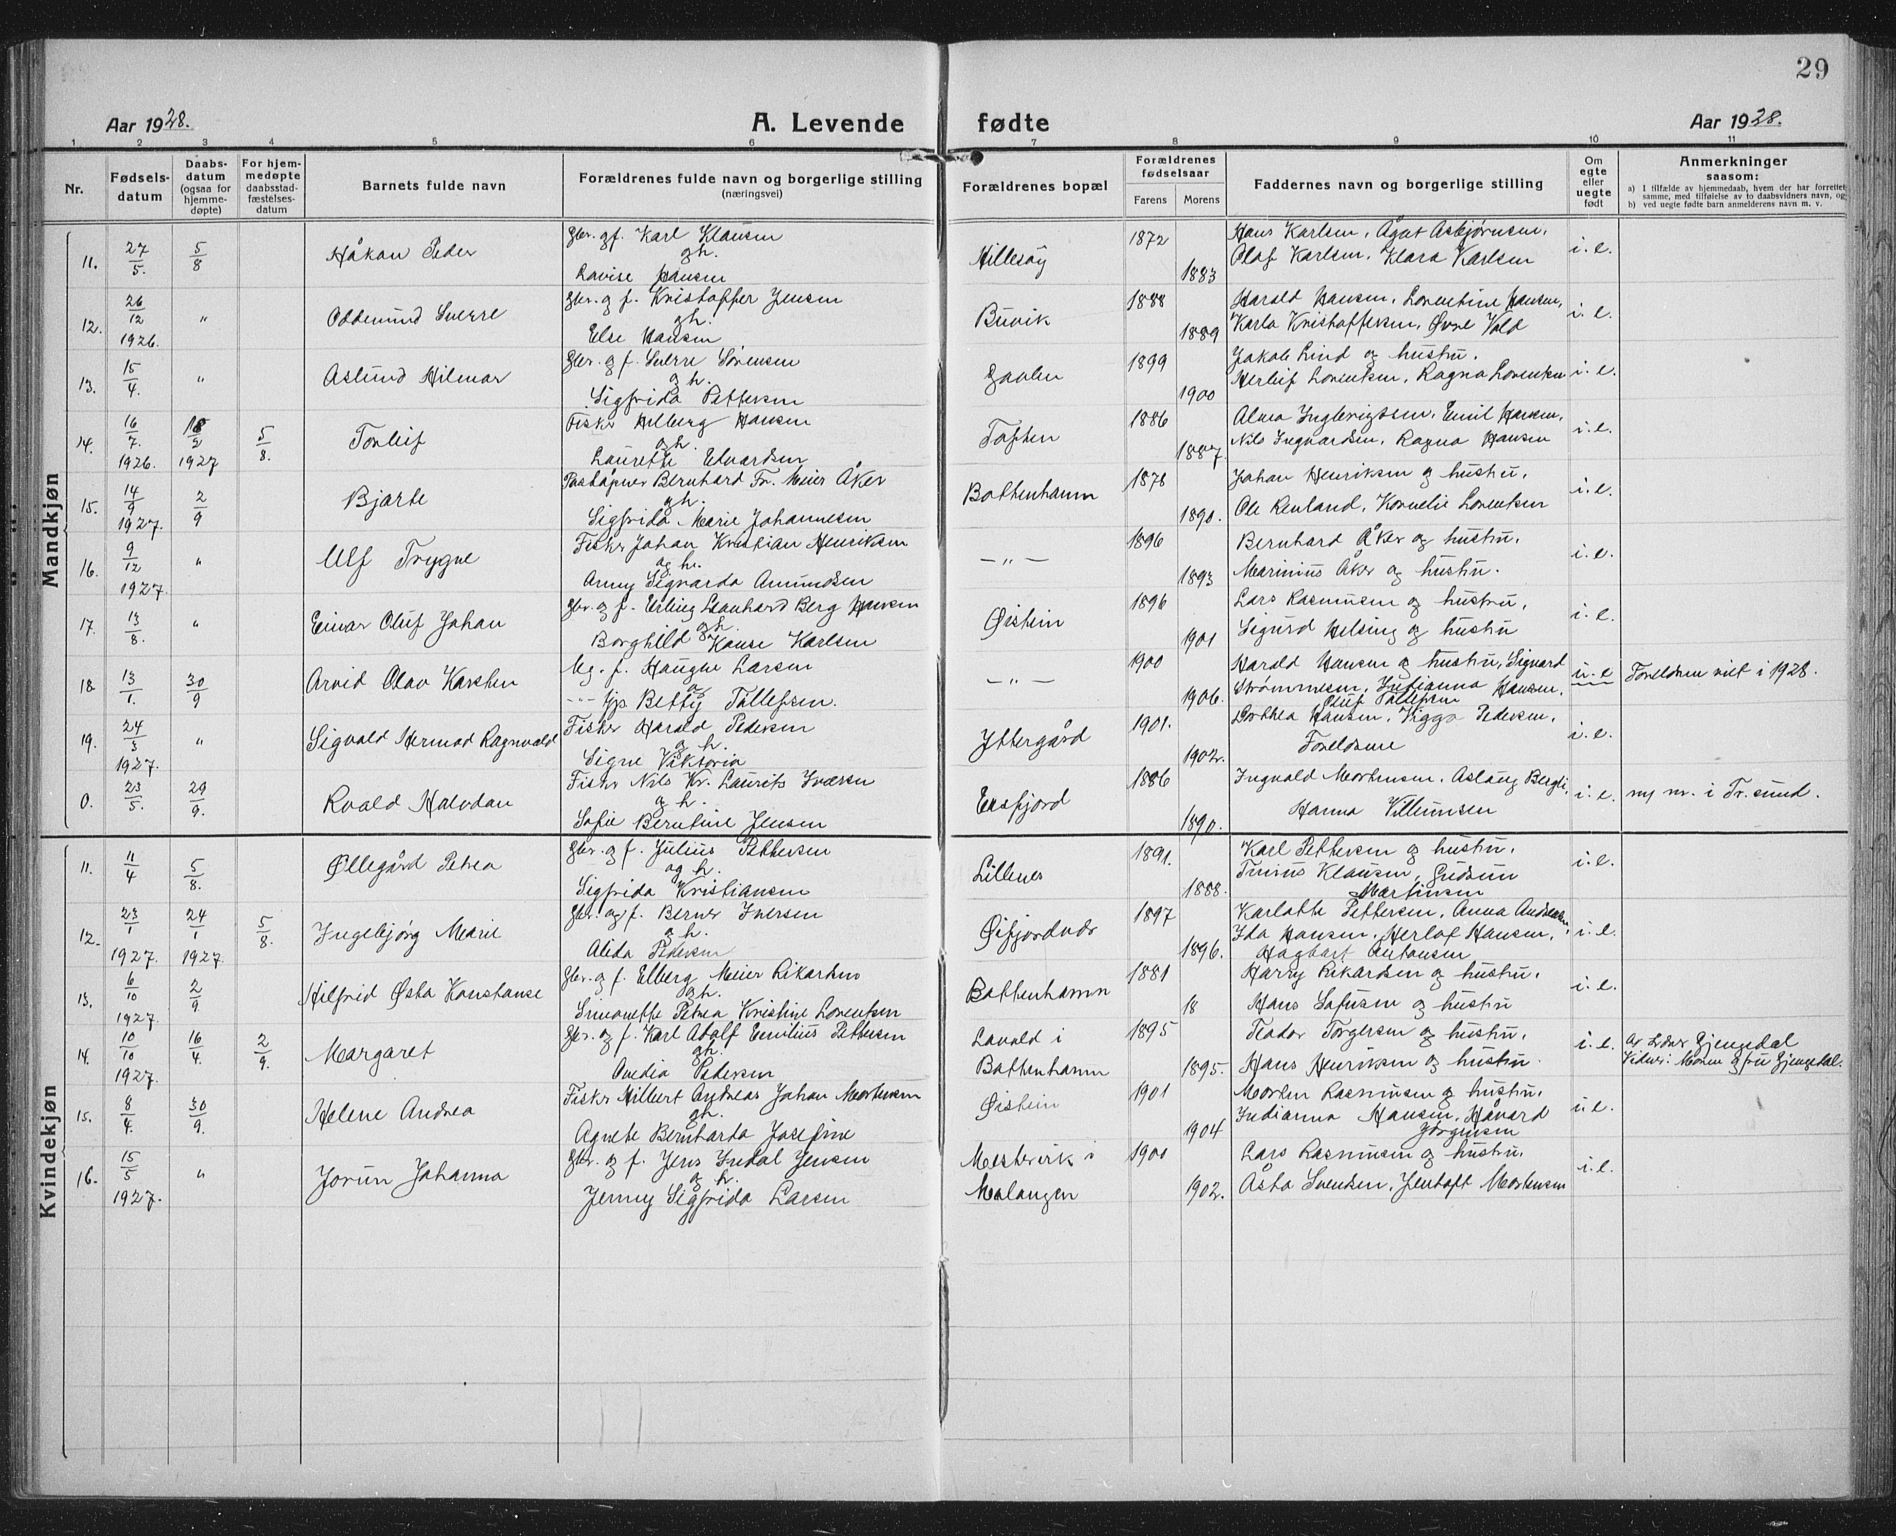 29
Aar 1928. A. Levende fødte Aar 1928.
1 2 3 4 5 6 7 8 9 10 11
Nr. Fødselsdatum Daabsdatum (ogsaa for hjemmedøpte) For hjemmedøpte daabsstadfæstelsesdatum Barnets fulde navn Forældrenes fulde navn og borgerlige stilling (næringsvei) Forældrenes bopæl Forældrenes fødselsaar Farens Morens Faddernes navn og borgerlige stilling Om egte eller uegte født Anmerkninger saasom:
a) I tilfælde av hjemmedaab, hvem der har forrettet samme, med tilføielse av to daabsvidners navn, og
b) ved uegte fødte barn anmelderens navn m. v.
Mandkjøn
11. 27/5. 5/8 Håkon Peder Gbr. og f. Karl Klausen og h. Lovise Hansen Hillesøy 1872 1883 Hans Karlsen, Ågot Asbjørnsen, Olaf Karlsen, Klara Karlsen i. e.
12. 26/12 1926. " Oddmund Sverre Gbr. og f. Kristoffer Jensen og h. Else Hansen Buvik 1888 1889 Harald Hansen, Lorentine Hansen, Karla Kristoffersen, Øvre Vold i. e.
13. 15/4. " Aslund Hilmar Gbr. og f. Sverre Sørensen og h. Sigfrida Pettersen 1899 1900 Jakob Lind og hustru, Herleif Lorentsen, Ragna Lorentsen i. e.
14. 16/7. 1926. 1927 5/8. Torleif Fisker Hilberg Hansen og h. Laurette Edvardsen Toften 1886 1887. Alma Ingebrigtsen, Emil Hansen, Nils Ingvardsen, Ragna Hansen i. e.
15. 14/9 1927. 2/9 Bjarte Poståpner Bernhard Fr. Meier Åker og h. Sigfrida Marie Johannesen Bottenhamn 1878 1890. Johan Henriksen og hustru, Ole Renland, Kornelie Lorentsen i. e.
16. 9/12 1927. " Ulf Trygve Fisker Johan Kristian Henriksen og h. Anny Sigvarda Amundsen — " — 1896 1893 Bernhard Åker og hustru, Marinius Åker og hustru. i. e.
17. 13/8. " Einar Oluf Johan Gbr. og f. Erling Leonhard Berg Hansen og h. Borghild Hanse Karlsen Øistein 1896 1901 Lars Rasmussen og hustru, Sigurd Helsing og hustru i. e.
18. 13/1. 30/9 Arvid Olav Karsten Ug. f. Haugne Larsen og — " — Gp. Betty Tollefsen. — " — 1900 1906. Harald Hansen og hustru, Sigvard Strømmesen, Indianna Hansen, Oluf Tollefsen u. e Foreldrene viet i 1928.
19. 24/3 1927. " Sigvald Hermod Ragnvald Fisker Harald Pedersen og h. Signe Viktoria Yttergård 1901. 1902. Dorthea Hansen, Viggo Pedersen, Foreldrene i. e.
0. 23/5. 29/9. Roald Halvdan Fisker Nils Kr. Laurits Iversen og h. Sofie Berntine Jensen Ersfjord 1886 1890. Ingvald Mortensen, Aslaug Bergli, Hanna Villumsen i. e. ny nr. i Tr.sund.
Kvindekjøn
11. 11/4 5/8. Øllegård Petrea Gbr. og f. Julius Pettersen og h. Sigfrida Kristiansen Lillenes 1891. 1888. Karl Pettersen og hustru, Klausen, Gudrun Martinsen i. e.
12. 23/1 1927. 24/1 1927. 5/8. Ingebjørg Marie Gbr. og f. Berner Iversen og h. Alida Pedersen Øifjordvær 1897 1896. Karlotte Pettersen, Anna Andreassen, Ida Hansen, Herlof Hansen, Hagbart Antonsen i. e.
13. 6/10 1927. 2/9. Hilfrid Østa Konstanse Gbr. og f. Elberg Meier Rikardsen og h. Simonette Petrea Kristine Lorentsen Bottenhamn 1881 18 Harry Rikardsen og hustru, Hans Sofusen og hustru i. e.
14. 10/10 1927. 16/4 2/9. Margaret Gbr. og f. Karl Adolf Emilius Pettersen og h. Ovedia Pedersen Lavold i Bottenhamn 1895 1895. Teodor Torgersen og hustru, Hans Henriksen og hustru. i. e. Av Lærer Gjengedal Vidner: Moren og fru Gjengedal.
15. 8/4. 30/9. Helene Andrea Fisker Hilbert Andreas Johan Mortensen og h. Agnete Bernharda Josefine Øistein 1901 1904 Morten Rasmussen og hustru, Indianna Hansen, Håvard Jørgensen i. e.
16. 15/5 1927. " Jorun Johanna Gbr. og f. Jens Indal Jensen og h. Jenny Sigfrida Larsen Mestervik i Malangen 1900 1902. Lars Rasmussen og hustru, Åsta Svendsen, Jentoft Mortensen i. e.